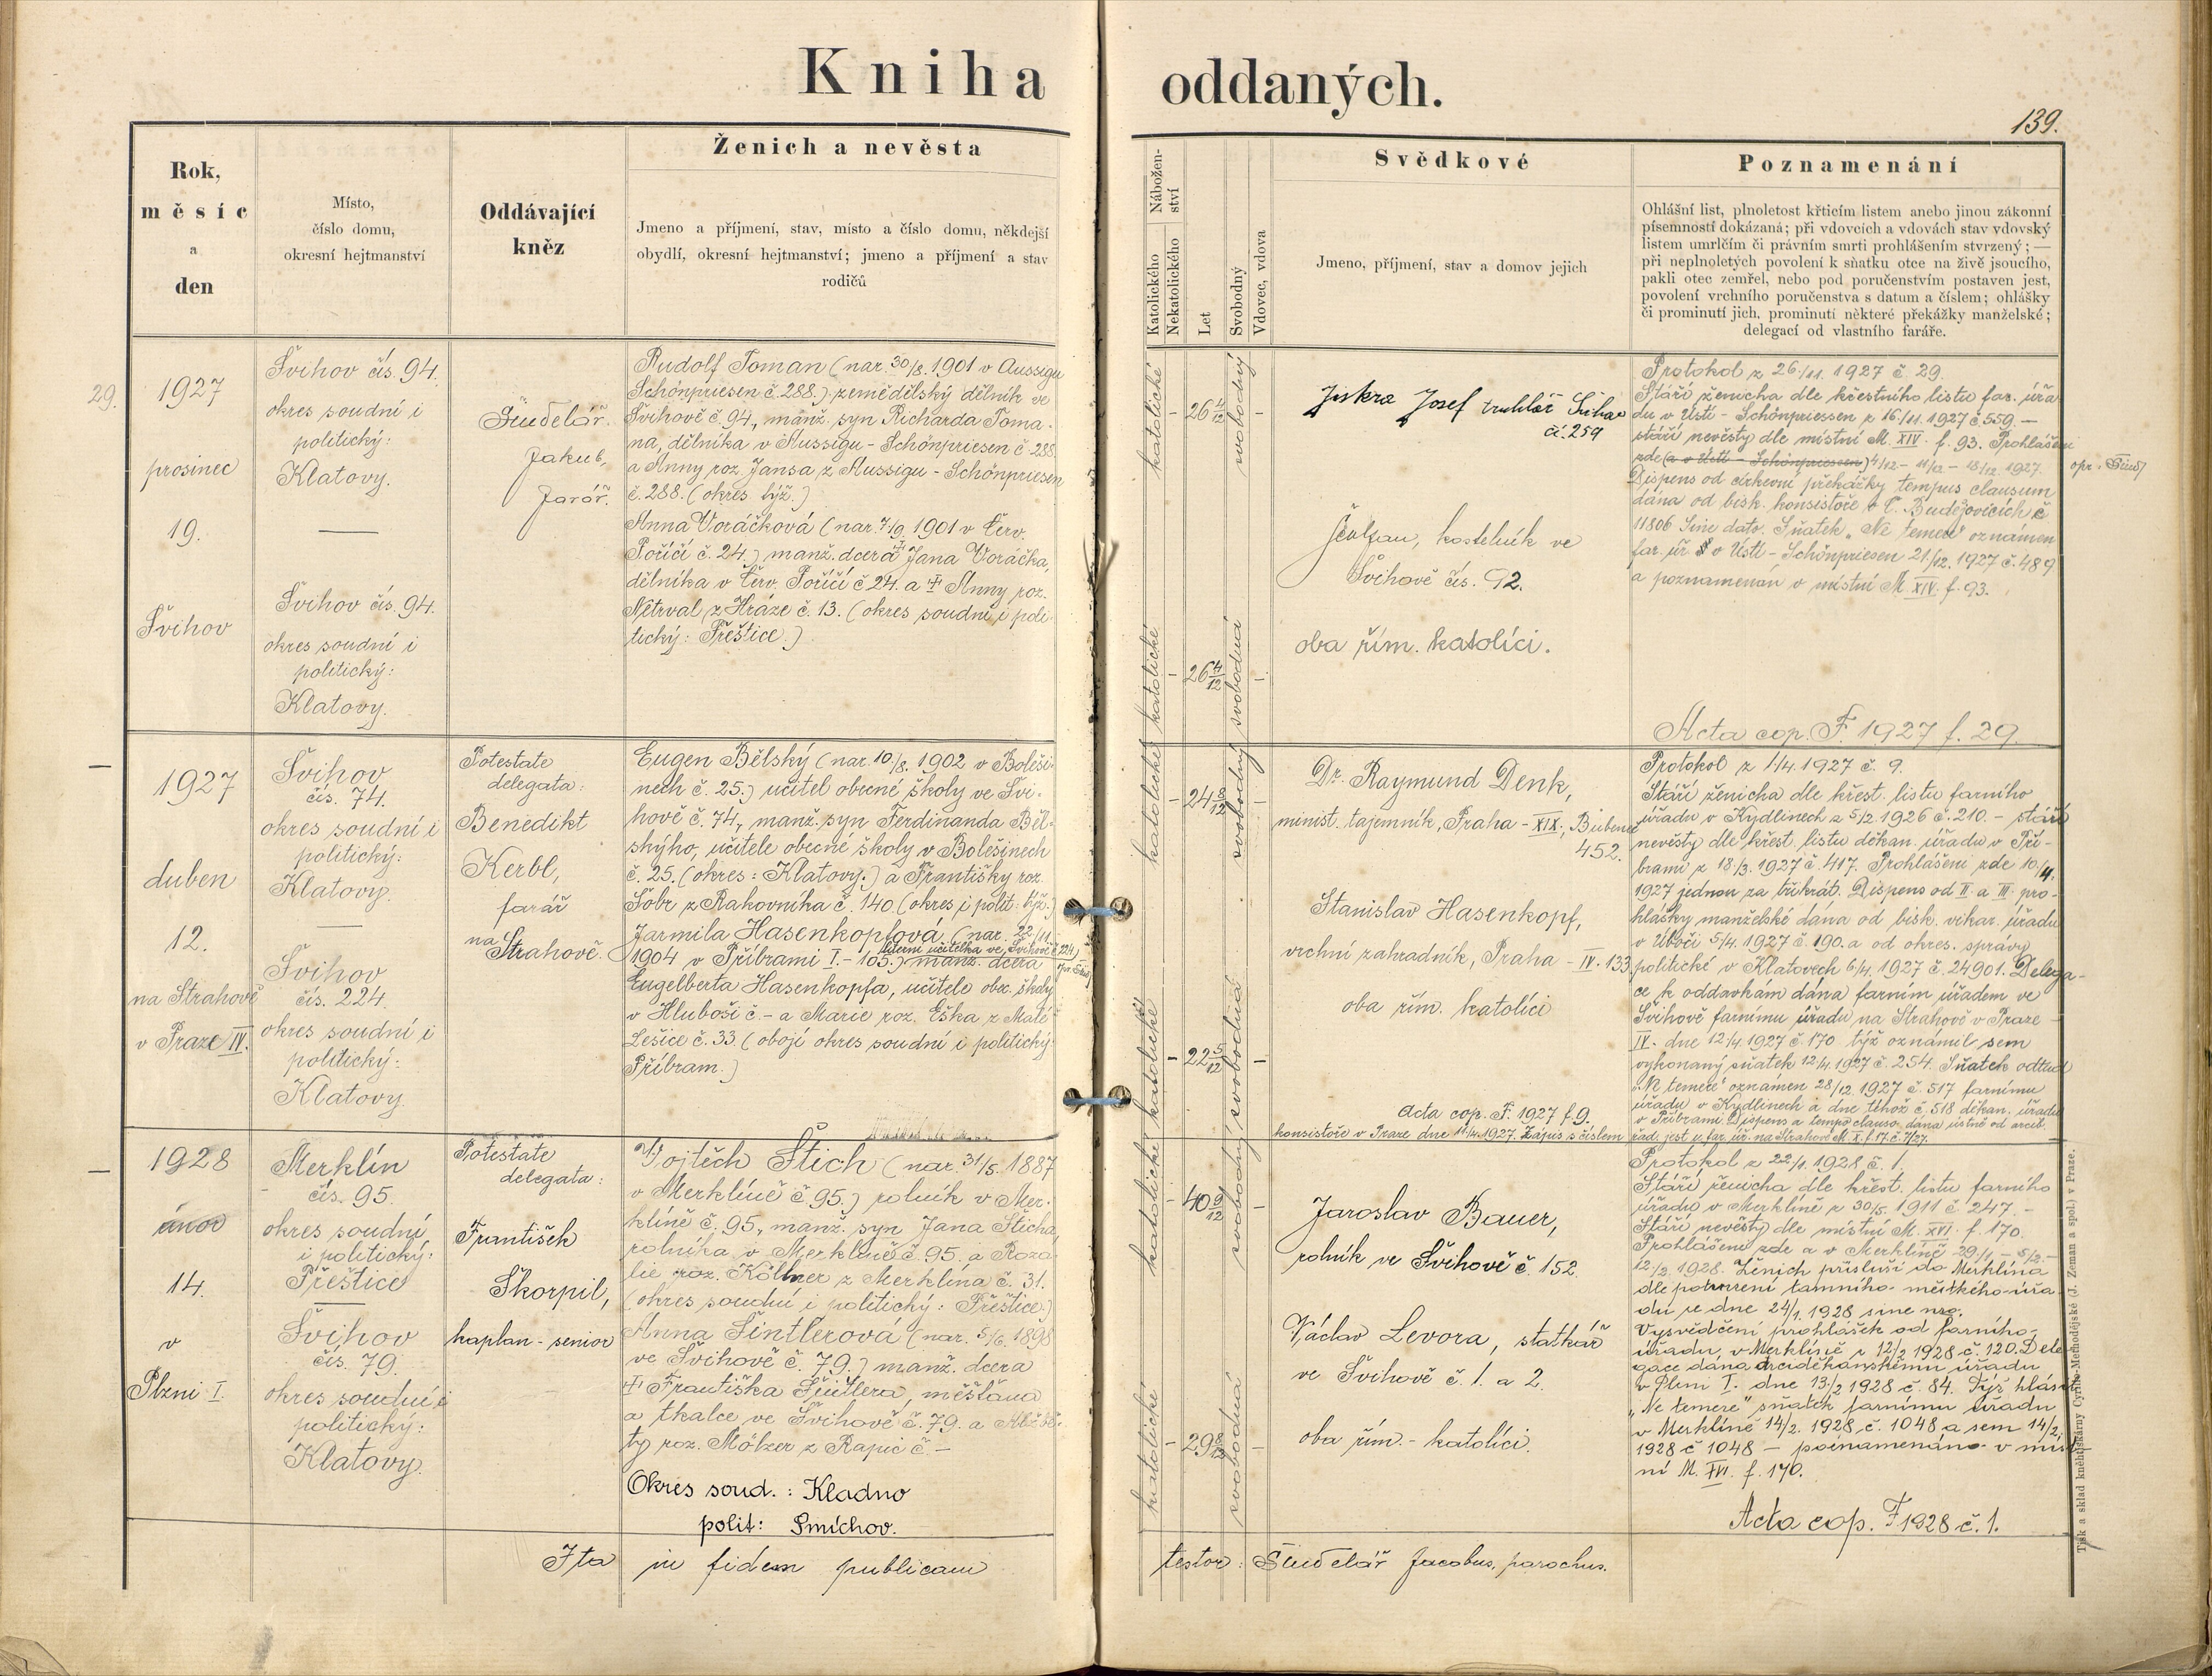 Kniha oddaných.
139.
Rok,
měsíc
a
den
Místo,
číslo domu,
okresní hejtmanství
Oddávající
kněz
Ženich a nevěsta
Jmeno a příjmení, stav, místo a číslo domu, někdejší
obydlí, okresní hejtmanství; jmeno a příjmení a stav
rodičů
Nábožen-
ství
Katolického
Nekatolického
Let
Svobodný
Vdovec, vdova
Svědkové
Jmeno, příjmení, stav a domov jejich
Poznamenání
Ohlášní list, plnoletost křticím listem anebo jinou zákonní
písemností dokázaná; při vdovcích a vdovách stav vdovský
listem umrlčím či právním smrti prohlášením stvrzený; —
při neplnoletých povolení k sňatku otce na živě jsoucího,
pakli otec zemřel, nebo pod poručenstvím postaven jest,
povolení vrchního poručenstva s datum a číslem; ohlášky
či prominutí jich, prominutí některé překážky manželské;
delegací od vlastního faráře.
29.
1927
prosinec
19.
Švihov
Švihov čís. 94.
okres soudní i
politický:
Klatovy.
Švihov čís. 94.
okres soudní i
politický:
Klatovy.
Šindelář
Jakub,
farář.
Rudolf Toman (nar. 30/8. 1901 v Aussigu
Schönpriesen č. 288.) zemědělský dělník ve
Švihově č. 94., manž. syn Richarda Toma-
na, dělníka v Aussigu - Schönpriesen č. 288.
a Anny roz. Jansa z Aussigu - Schönpriesen
č. 288. (okres týž.)
Anna Voráčková (nar. 7/9. 1901 v Červ.
Poříčí č. 24.) manž. dcera † Jana Voráčka,
dělníka v Červ. Poříčí č. 24. a † Anny roz.
Netrval z Hráze č. 13. (okres soudní i poli-
tický: Přeštice.)
katolické
26 4/12
svobodný
katolické
26 4/12
svobodná
Jiskra Josef truhlář Švihov
čí. 259
kostelník ve
Švihově čís. 92.
oba řím. katolíci.
Protokol z 26/11. 1927 č. 29.
Stáří ženicha dle křestního listu far. úřa-
du v Ústí - Schönpriessen z 16/11. 1927 č. 559. —
stáří nevěsty dle místní M. XIV. f. 93. Prohlášeni
zde (a v Ústí - Schönpriessen) 4/12. - 11/12 - 18/12. 1927. opr. Šind.
Dispens od církevní překážky tempus clausum
dána od bisk. konsistoře v Č. Budějovicích č.
11806 Sine dato. Sňatek „Ne temere" oznámen
far. úř. v Ústí - Schönpriesen 21./12. 1927 č. 489
a poznamenán v místní M. XIV. f. 93.
Acta cop. F. 1927 f. 29.
1927
duben
12.
na Strahově
v Praze IV.
Švihov
čís. 74.
okres soudní i
politický:
Klatovy.
Švihov
čís. 224.
okres soudní i
politický:
Klatovy.
Potestate
delegata:
Benedikt
Kerbl,
farář
na
Strahově.
Eugen Bělský (nar. 10./8. 1902 v Boleši-
nech č. 25.) učitel obecné školy ve Švi-
hově č. 74., manž. syn Ferdinanda Běl-
ského, učitele obecné školy v Bolešinech
č. 25. (okres: Klatovy.) a Františky roz.
Šobr z Rakovníka č. 140. (okres i polit: týž.)
Jarmila Hasenkopfová (nar. 22/11.
literní učitelka ve Švihově č. 224.)
1904 v Příbrami I. - 105.) manž. dcera
Engelberta Hasenkopfa, učitele obec. školy
v Hluboši č. - a Marie roz. Eška z Malé
Lešice č. 33. (obojí okres soudní i politický:
Příbram.)
katolické
24 8/12
svobodný
katolické
22 5/12
svobodná
Dr. Raymund Denk,
minist. tajemník, Praha - XIX., Bubeneč
452.
Stanislav Hasenkopf,
vrchní zahradník, Praha - IV. 133.
oba řím. katolíci
Acta cop. F. 1927 f. 9.
Protokol z 1/4. 1927 č. 9.
Stáří ženicha dle křest. listu farního
úřadu v Kydlinech z 5/2. 1926 č. 210. - stáří
nevěsty dle křest. listu děkan. úřadu v Pří-
brami z 18/3. 1927 č. 417. Prohlášeni zde 10/4.
1927 jednou za třikrát. Dispens od II. a III. pro-
hlášky manželské dána od bisk. vikar. úřadu
v Úboči 5/4. 1927 č. 190. a od okres. správy
politické v Klatovech 6/4. 1927 č. 24901. Delega-
ce k oddavkám dána farním úřadem ve
Švihově farnímu úřadu na Strahově v Praze
IV. dne 12/4. 1927 č. 170. týž oznámil sem
vykonaný sňatek 12/4. 1927 č. 254. Sňatek odtud
„Ne temere" oznámen 28/12. 1927 č. 517 farnímu
úřadu v Kydlinech a dne téhož č. 518 děkan. úřadu
v Příbrami. Dispens a tempo clauso dána ústně od arcib.
konsistoře v Praze dne 11/4. 1927. Zápis s číslem řad. jest u far. úř. na Strahově M. X. f. 17. č. 7/27.
1928
únor
14.
v
Plzni I.
Merklín
čís. 95.
okres soudní
i politický:
Přeštice
Švihov
čís. 79.
okres soudní i
politický:
Klatovy.
Potestate
delegata:
František
Škorpil,
kaplan - senior
Vojtěch Štich (nar. 31/5. 1887
v Merklíně č. 95.) rolník v Mer-
klíně č. 95., manž. syn Jana Šticha,
rolníka v Merklíně č. 95. a Roza-
lie roz. Köllner z Merklína č. 31.
(okres soudní i politický: Přeštice.)
Anna Šintlerová (nar. 5/6. 1898
ve Švihově č. 79.) manž. dcera
† Františka Šintlera, měšťana
a tkalce ve Švihově č. 79. a Alžbě-
ty roz. Mölzer z Rapic č. -
Okres soud.: Kladno
polit: Smíchov.
katolické
40 9/12
svobodný
katolické
29 8/12
svobodná
Jaroslav Bauer,
rolník ve Švihově č. 152.
Václav Levora, statkář
ve Švihově č. 1. a 2.
oba řím. - katolíci.
Protokol z 22/1. 1928 č. 1.
Stáří ženicha dle křest. listu farního
úřadu v Merklíně z 30/5. 1911 č. 247. -
Stáří nevěsty dle místní M. XVI. f. 170.
Prohlášeni zde a v Merklíně 29/1. - 5/2. -
12/2. 1928. Ženich přísluší do Merklína
dle potvrzení tamního městkého úřa-
du ze dne 24/1. 1928 sine nro.
Vysvědčení prohlášek od farního
úřadu v Merklíně z 12/2 1928 č. 120. Dele-
gace dána arciděkanskému úřadu
v Plzni I. dne 13/2 1928 č. 84. Týž hlásit
„Ne temere" sňatek farnímu úřadu
v Merklíně 14/2. 1928 č. 1048 a sem 14/2.
1928 č 1048 — poznamenáno v míst-
ní M. XVI. f. 170.
Acta cop. F 1928 č. 1.
Ita in fidem publicam testor: Šindelář Jacobus, parochus.
Tisk a sklad knihtiskárny Cyrillo-Methodějské (J. Zeman a spol.) v Praze.